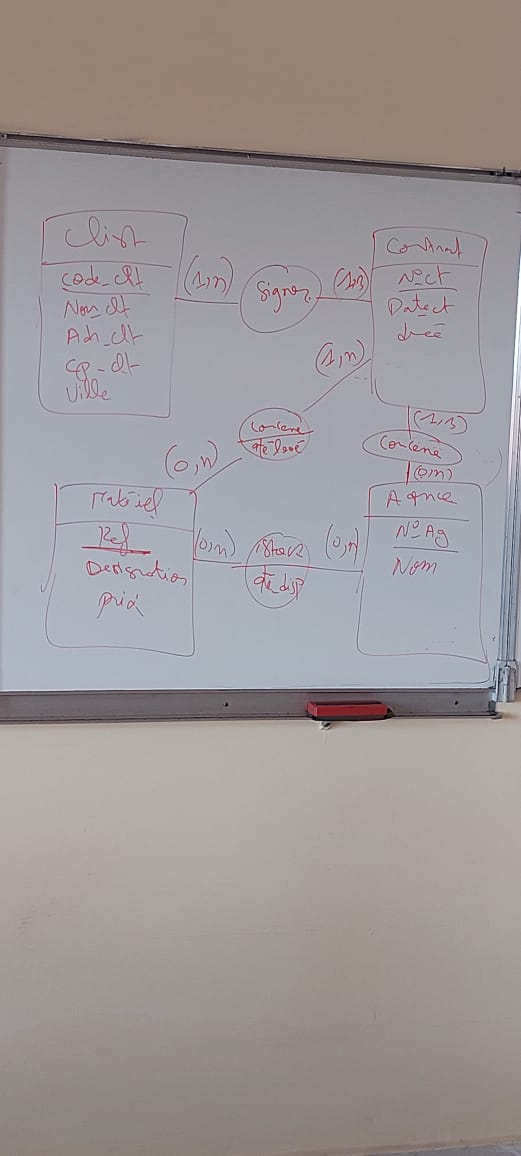 Client
code_clt
Nom_clt
Adr_clt
cp_clt
Ville
(1,n)
Signer
(1,1)
Contrat
N°ct
Datect
durée
(1,n)
Concerne
qté louée
(0,n)
(1,1)
Concerne
(0,n)
Matériel
Ref
Designation
prix
(0,n)
Stock
qté_disp
(0,n)
Agence
N°Ag
Nom